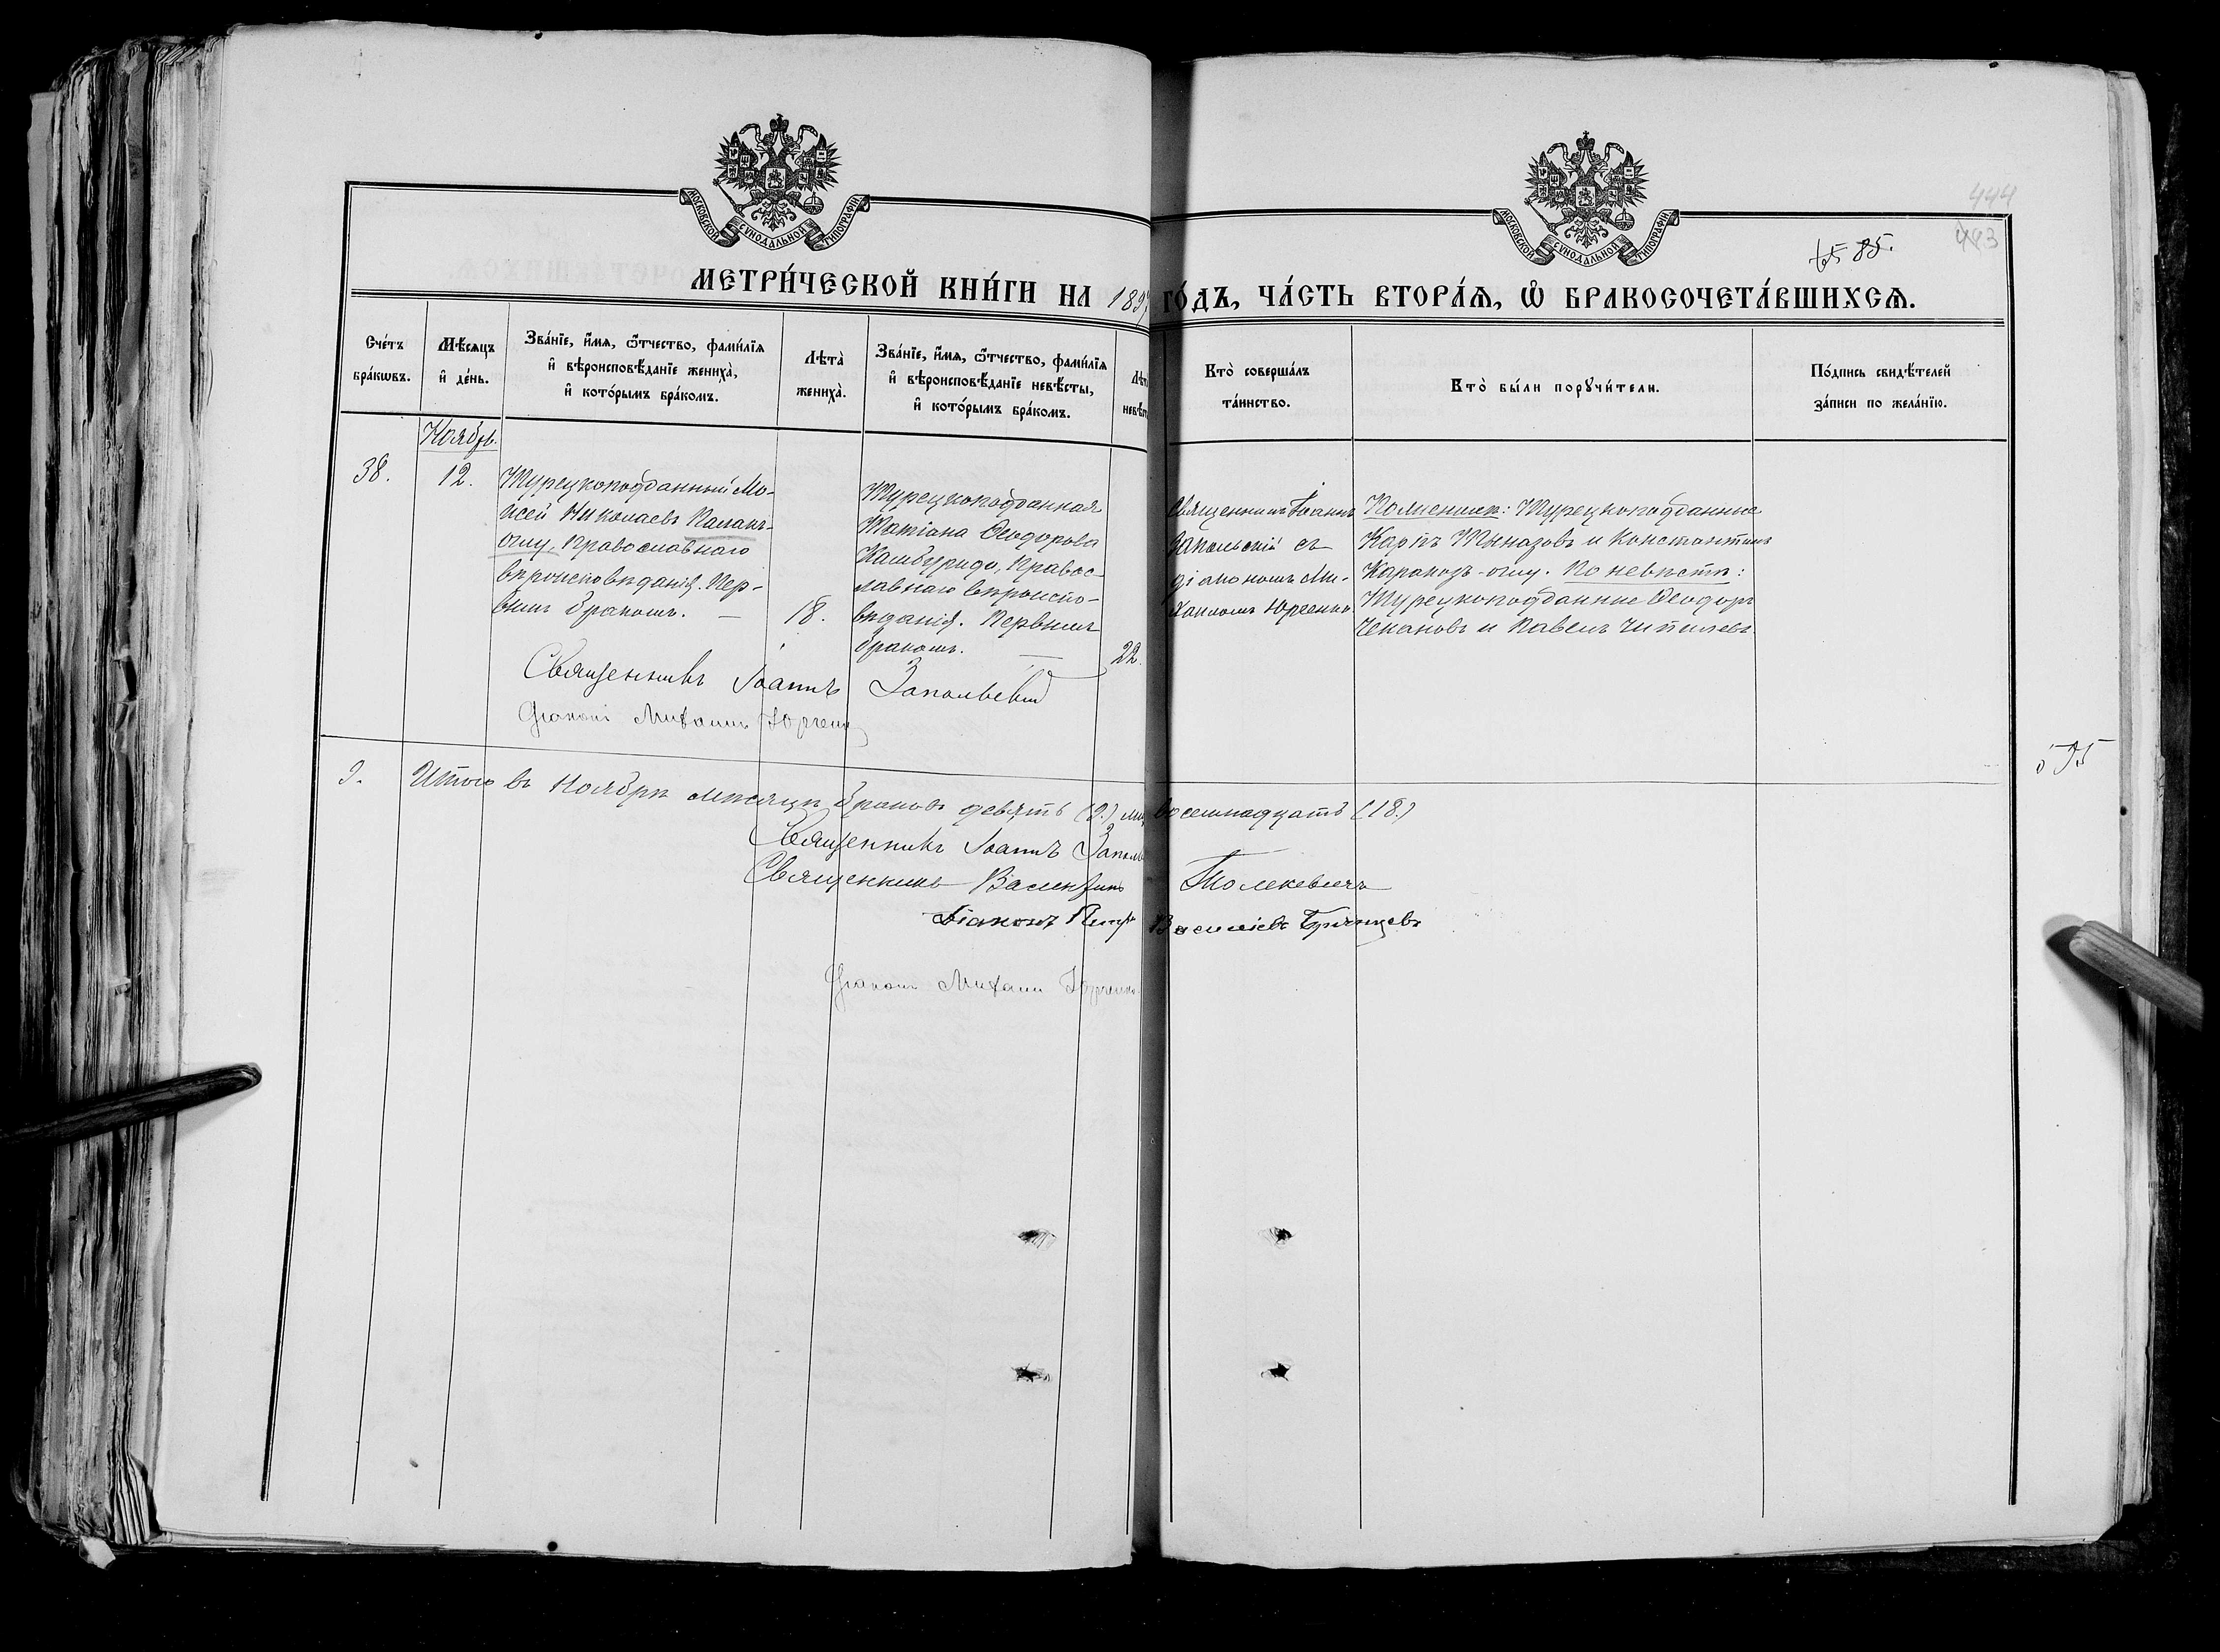 МОСКОВСКОЙ СѴНОДАЛЬНОЙ ТИПОГРАФІИ
МОСКОВСКОЙ СѴНОДАЛЬНОЙ ТИПОГРАФІИ
444
483
85.
МЕТРИ́ЧЕСКОЙ КНИ́ГИ НА 189 ГО́ДЪ, ЧА́СТЬ ВТОРА́Ѧ, Ѽ БРАКОСОЧЕТА́ВШИХСѦ.
Сче́тъ бра́кωвъ.
Мѣ́сѧцъ и҆ де́нь.
Зва́нїе, и҆́мѧ, ѻ҆́тчество, фами́лїѧ и҆ вѣроисповѣ́данїе жениха̀, и҆ кото́рымъ бра́комъ.
Лѣта̀ жениха̀.
Зва́нїе, и҆́мѧ, ѻ҆́тчество, фами́лїѧ и҆ вѣроисповѣ́данїе невѣ́сты, и҆ кото́рымъ бра́комъ.
Лѣт невѣст
Кто̀ соверша́лъ та́инство.
Кто̀ бы́ли порꙋчи́тели.
По́дпись свидѣ́телей за́писи по жела́нїю.
Ноябрь.
38.
12.
Турецкоподданный Мо-
исей Николаевъ Каланъ-
оглу, православнаго
вѣроисповѣданія. Пер-
вымъ бракомъ. —
18.
Турецкоподданная
Татіана Ѳеодорова
Камбуриди, правос-
лавнаго вѣроиспо-
вѣданія. Первымъ
бракомъ. —
22.
Священникъ Іоаннъ
Запольскій съ
діакономъ Ми-
хаиломъ Юрченко
По женихѣ: Турецкоподданные
Карпъ Тыназовъ и Константинъ
Каракозъ-оглу. По невѣстѣ:
Турецкоподданные Ѳеодоръ
Чекановъ и Павелъ Чипилевъ.
Священникъ Іоаннъ Запольскій
Діаконъ Михаилъ Юрченко
595
9. Итого въ Ноябрѣ мѣсяцѣ браковъ девять (9.) восемнадцать (18.)
Священникъ Іоаннъ Заполь
Священникъ Валентинъ
Діаконъ Петръ Василіевъ
Діаконъ Михаилъ Юрченко